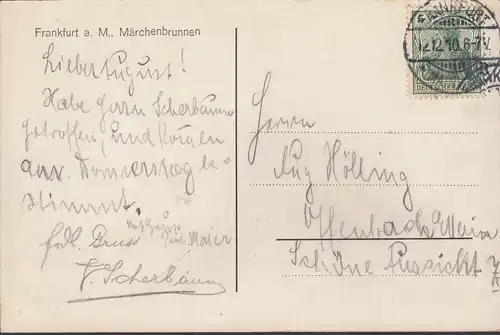 Frankfurt a. M., Märchenbrunnen
Lieber August!
Habe Herrn Scherbaum
getroffen, und kommen
am Donnerstag be-
stimmt.
frdl. Gruss
Maier
F. Scherbaum
FRANKFURT
12.12.10.6-7V.
DEUTSCHES REICH
Herrn
Aug Hölling
Offenbach Main
Schöne Aussicht